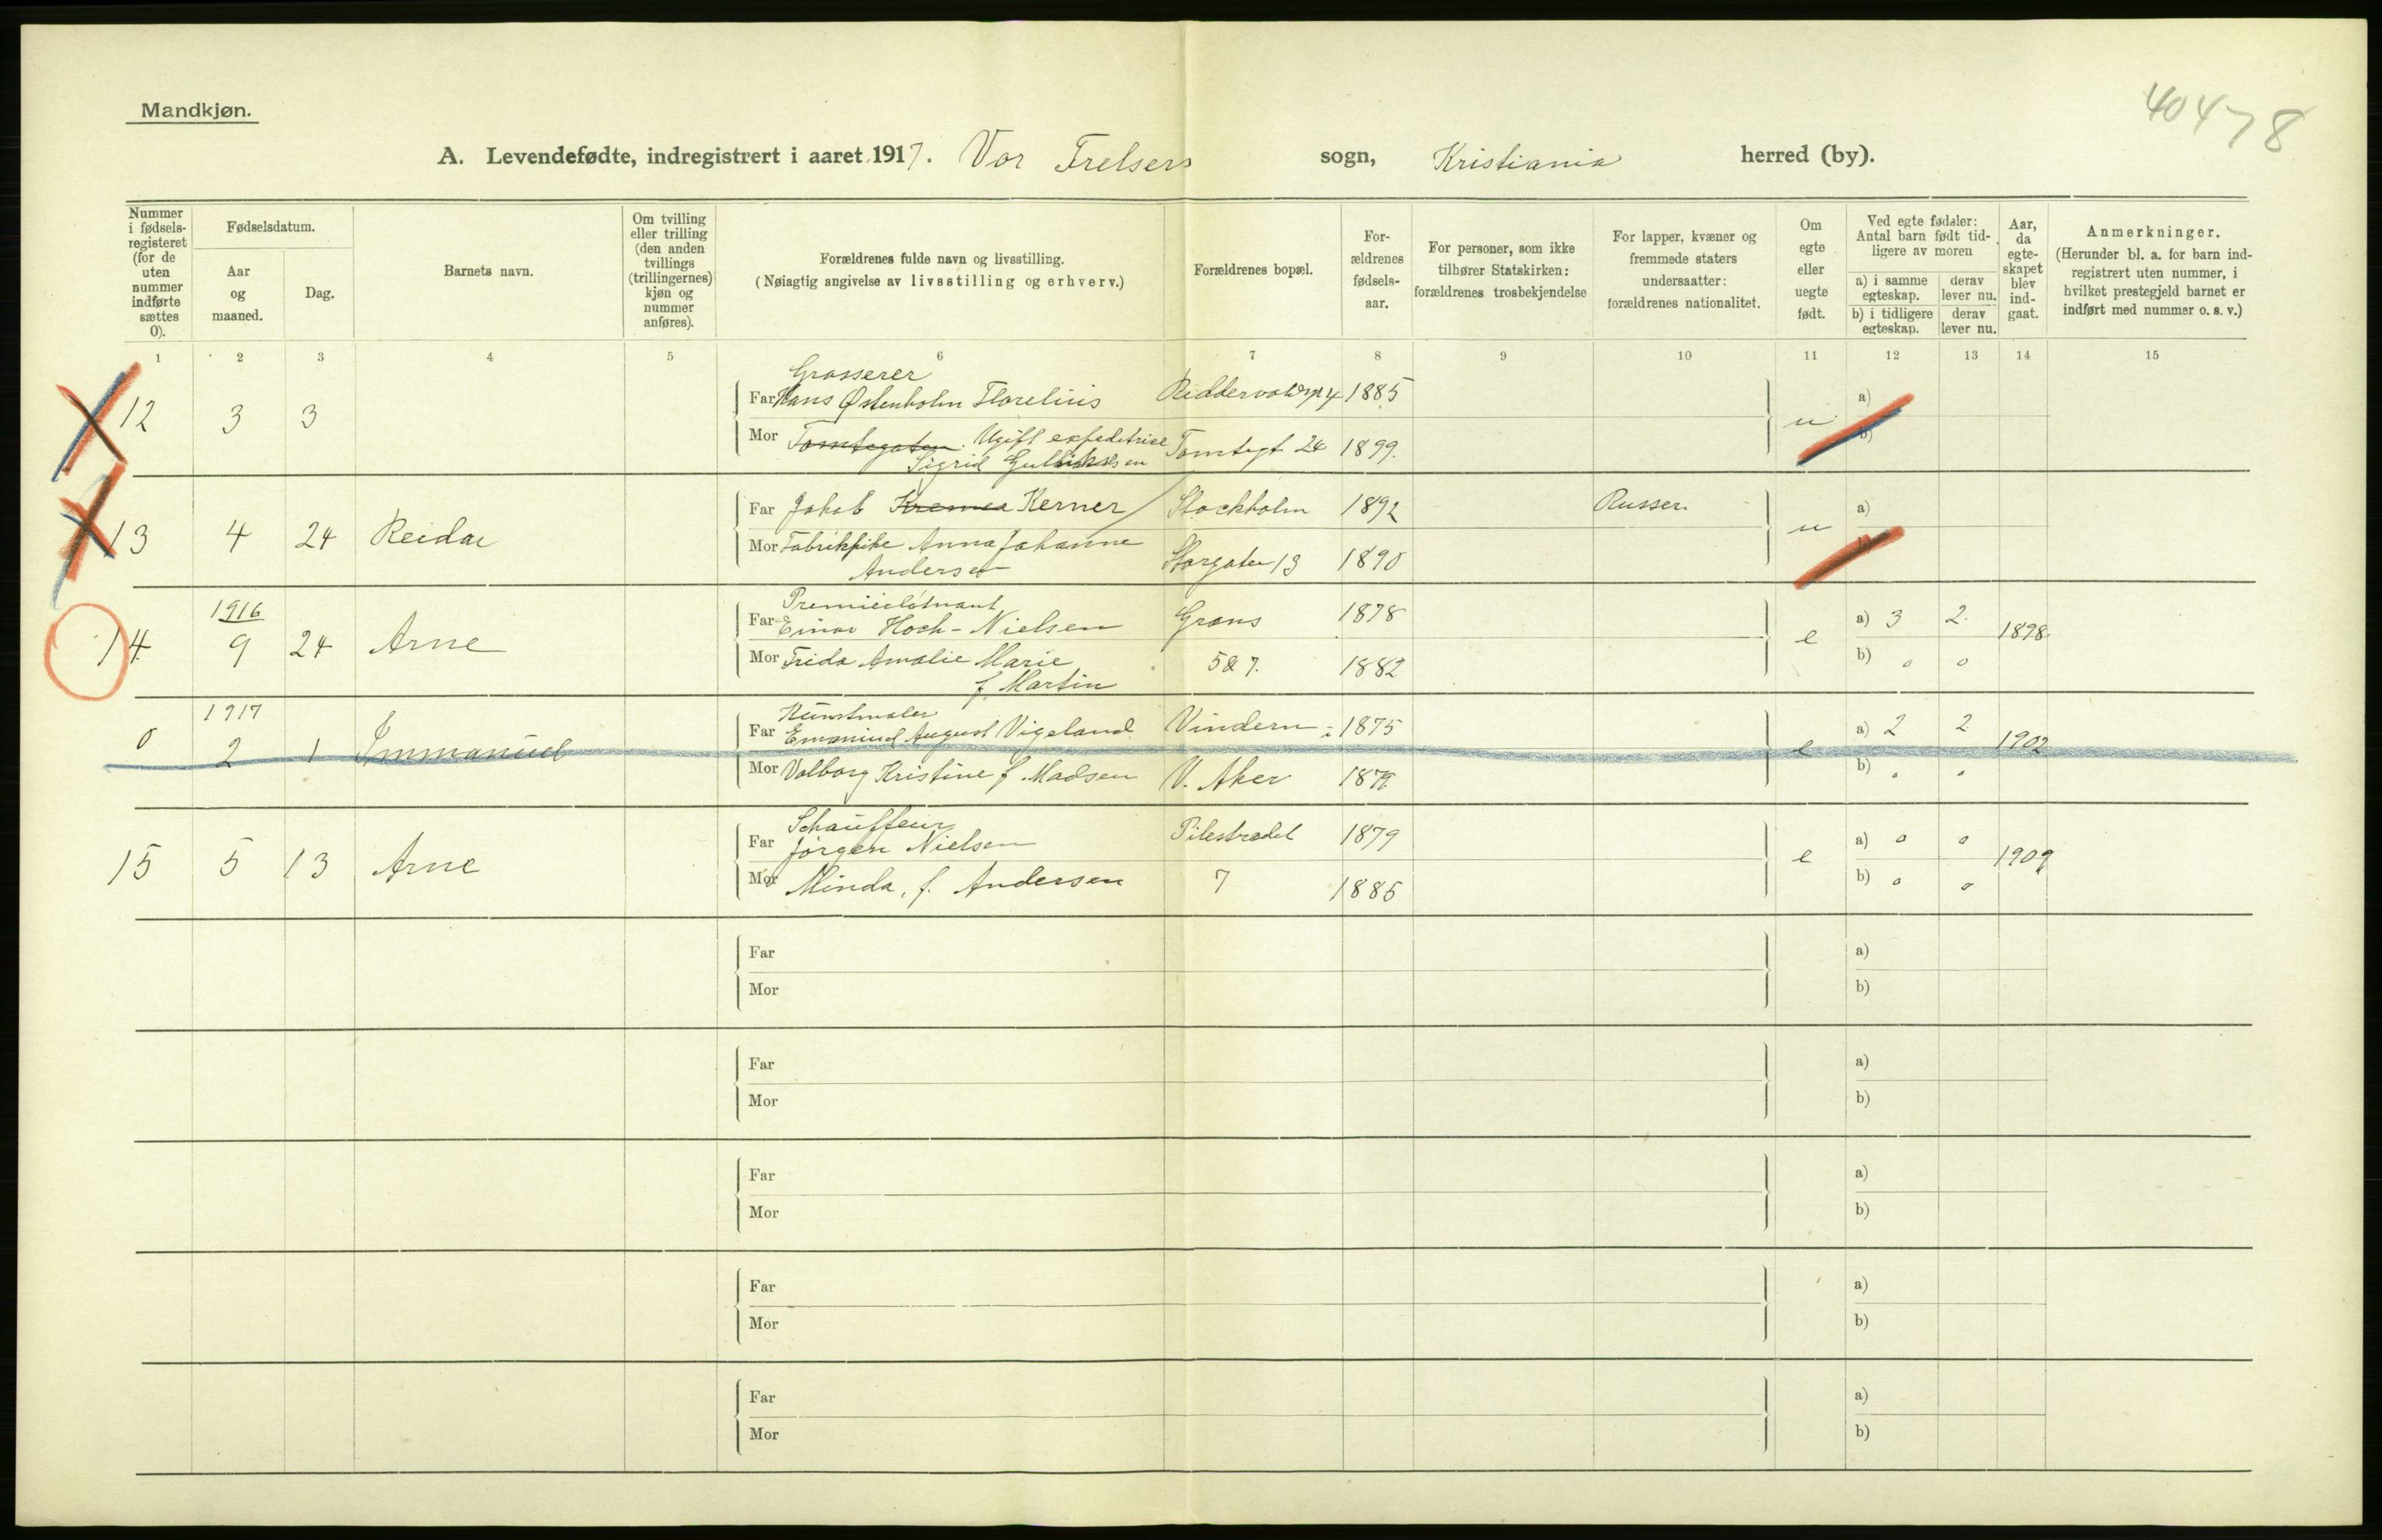 Mandkjøn.
40478
A. Levendefødte, indregistrert i aaret 1917. Vor Frelsers sogn, Kristiania herred (by).
Nummer i fødsels-registeret (for de uten nummer indførte sættes 0).
Fødselsdatum.
Aar og maaned.
Dag.
Barnets navn.
Om tvilling eller trilling (den anden tvillings (trillingernes) kjøn og nummer anføres).
Forældrenes fulde navn og livsstilling.
(Nøiagtig angivelse av livsstilling og erhverv.)
Forældrenes bopæl.
For-ældrenes fødsels-aar.
For personer, som ikke tilhører Statskirken: forældrenes trosbekjendelse
For lapper, kvæner og fremmede staters undersaatter: forældrenes nationalitet.
Om egte eller uegte født.
Ved egte fødsler: Antal barn født tid-ligere av moren
a) i samme egteskap.
derav lever nu.
b) i tidligere egteskap.
derav lever nu.
Aar, da egte-skapet blev ind-gaat.
Anmerkninger.
(Herunder bl. a. for barn ind-registrert uten nummer, i hvilket prestegjeld barnet er indført med nummer o. s. v.)
1 2 3 4 5 6 7 8 9 10 11 12 13 14 15
Grosserer
12 3 3 Far Hans Østenholm Florelius 1885 u a)
Mor Tomtegaten Ugift expeditrise Tomtegt 24 1899. b)
Sigrid Gulliksen
13 4 24 Reidar Far Jakob Kerner Stockholm 1892 Russer. u a)
Mor Fabrikpike Anna Johanne Storgaten 13 1890
Andersen
1916 Premierløitnant
14 9 24 Arne Far Einar Hoch-Nielsen Grøns 1878 e a) 3 2 1898
Mor Frida Amalie Marie 5 & 7. 1882 b) 0 0
f. Martin
1917 Kunstmaler
0 2 1 Immanuel Far Emanuel August Vigeland Vindern 1875 e a) 2 2 1902
Mor Valborg Kristine f. Madsen V. Aker 1879 b) " "
Schauffeur
15 5 13 Arne Far Jörgen Nielsen Pilestrædet 1879 e a) 0 0 1909
Mor Minda, f. Andersen 7 1885 b) 0 0
Far a)
Mor b)
Far a)
Mor b)
Far a)
Mor b)
Far a)
Mor b)
Far a)
Mor b)